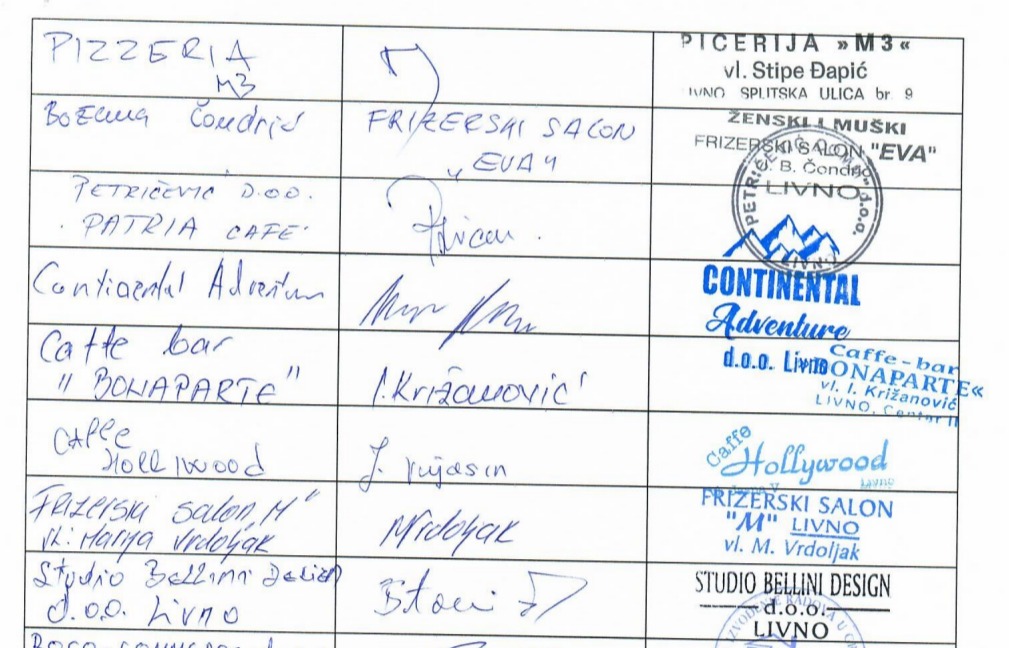 PIZZERIA
M3
PICERIJA »M3«
vl. Stipe Đapić
LIVNO SPLITSKA ULICA br. 9
Božena Čondrić
FRIZERSKI SALON
"EVA"
ŽENSKI I MUŠKI
FRIZERSKI SALON "EVA"
B. Čondrić
LIVNO
PETRIČEVIĆ D.O.O.
PATRIA CAFE
PETRIČEVIĆ d.o.o.
LIVNO
Continental Adventure
CONTINENTAL
Adventure
d.o.o. Livno
Caffe bar
"BONAPARTE"
I. Križanović
Caffe-bar
»BONAPARTE«
vl. I. Križanović
LIVNO, Centar II
CAffe
Holliwood
J. Vujasin
Caffe
Hollywood
Livno
FRIZERSKI SALON „M"
vl: Marija Vrdoljak
MVrdoljak
FRIZERSKI SALON
"M" LIVNO
vl. M. Vrdoljak
Studio Bellini Design
d.o.o. Livno
STUDIO BELLINI DESIGN
d.o.o.
LIVNO